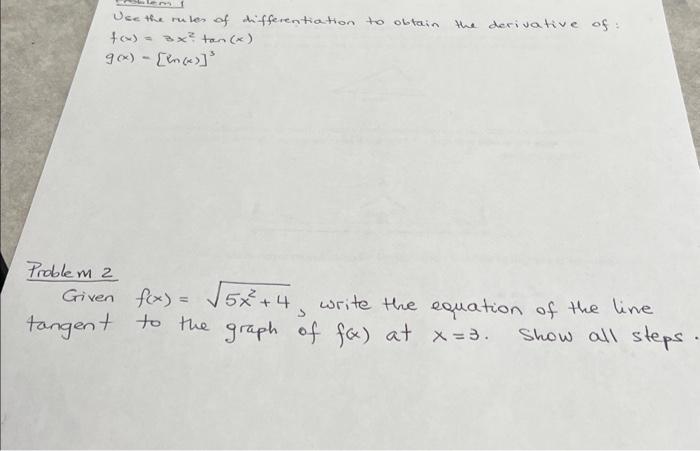 Problem 1
Use the rules of differentiation to obtain the derivative of :
f(x) = 3x². tan(x)
g(x) = [ln(x)]³
Problem 2
Given f(x) = √(5x²+4), write the equation of the line
tangent to the graph of f(x) at x=3. Show all steps.